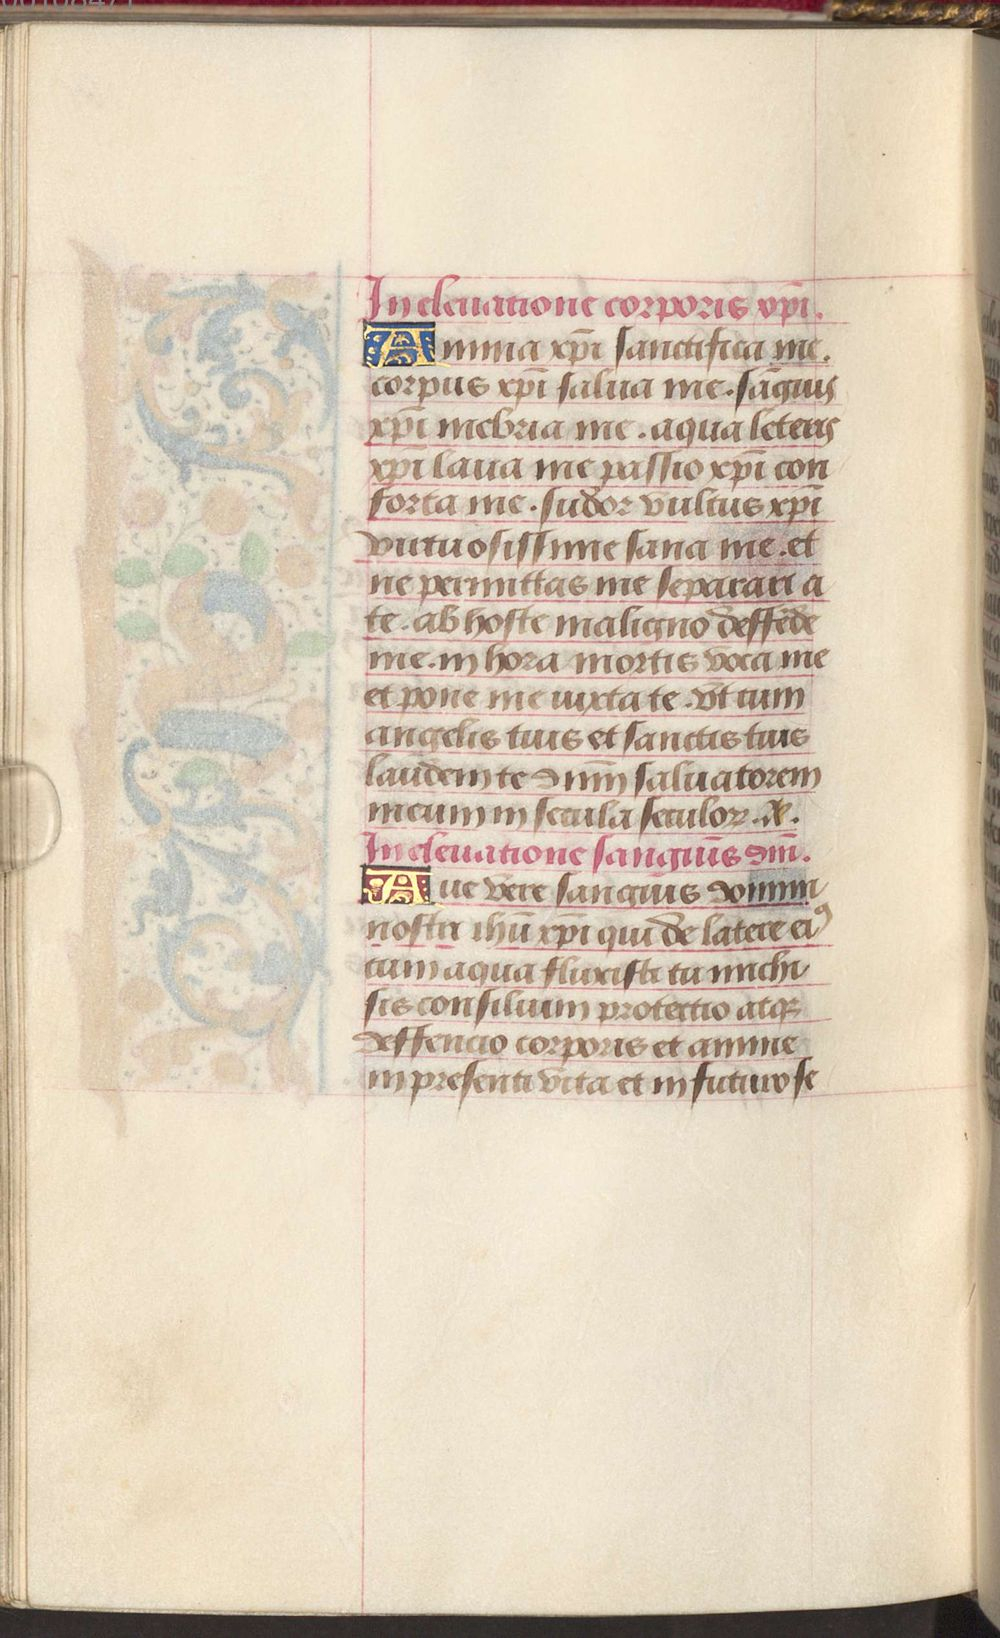 In eleuatione corporis xp̄i.
Anima xp̄i sanctifica me.
corpus xp̄i salua me. sāguis
xp̄i inebria me. aqua leteris
xp̄i laua me passio xp̄i con
forta me. sudor vultus xp̄i
virtuosissime sana me. et
ne permittas me separari a
te. ab hoste maligno deffēde
me. in hora mortis voca me
et pone me iuxta te. vt cum
angelis tuis et sanctis tuis
laudem te dn̄m saluatorem
meum in secula seculoꝝ. Ā.
In eleuatione sanguīs dn̄i.
Aue vere sanguis domini
nostri ihū xp̄i qui de latere eiꝰ
cum aqua fluxisti tu michi
sis consilium protectio atqꝫ
deffencio corporis et anime
in presenti vita et in futuro se